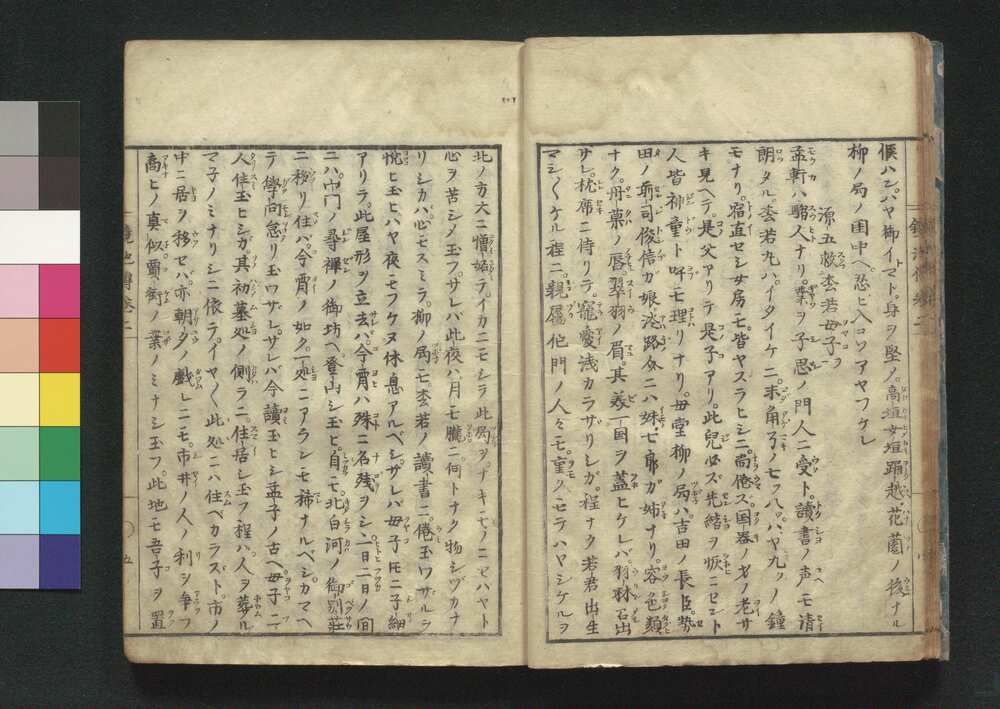 候ハン。ハヤ御イトマト。身ヲ堅ノ。高垣女垣踊越花薗ノ後ナル
柳ノ局ノ囲中ヘ。忍ヒ入コソアヤフケレ
源五救李若母子
孟軒ハ鄒人ナリ。業ヲ子思ノ門人ニ受ト。讀書ノ声モ清
朗タル。李若丸ハ。イタイケニ。未角子ノ七ツ八。ハヤ九ノ鐘
モナリ。宿直セシ女房モ。皆ヤスラヒシニ。尚倦ス。国器ノ才ノ老サ
キ見ヘテ。是父アリテ是子アリ。此兒必ズ先緒ヲ恢ニセント
人皆神童ト呼モ理リナリ。母堂柳ノ局ハ。吉田ノ長臣。勢
田ノ郡司俊信カ娘。淡路
ナク。丹菓ノ唇。翠羽ノ眉。其美一国ヲ蓋ヒケレバ。羽林召出
サレ。枕席ニ侍リテ。寵愛浅カラザリシガ。程ナク若君出生
マシ〳〵ケル程ニ。親属他門ノ人々モ。重クモテハヤシケルヲ
北ノ方大ニ憎妬テ。イカニモシテ此局ヲナキモノニセバヤト
心ヲ苦シメ玉フ。サレバ此夜ハ月モ朧ニ。何トナク物シヅカナ
リシカハ。心モスミテ。柳ノ局モ李若ノ讀書ニ倦玉ワサルヲ
悦ヒ玉ヒ。ハヤ夜モフケヌ休息アルベシ。ザレバ母子トモニ子細
アリテ。此屋形ヲ立去バ。今宵ハ殊ニ名残ヲシ。一日二日ノ間
ニハ。山門ノ尋禅ノ御坊ヘ。登山シ玉ヒ。自ニモ。北白河ノ御別荘
ニ移リ住バ。今宵ノ如ク。一処ニアランモ稀ナルベシ。カマヘ
テ学問怠リ玉ワザレ。サレバ今讀玉ヒシ孟子ノ古ヘ。母子二
人住玉ヒシガ。其初墓処ノ側ラニ。住居シ玉フ程ハ。人ヲ葬ル
マ子ノミナリシニ依テ。イヤ〳〵此処ニハ住ベカラズト。市ノ
中ニ居ヲ移セバ。亦朝夕ノ戯レニモ。市井ノ人ノ利ヲ争フ
高ヒノ真似。賈衒ノ業ノミナシ玉フ。此地モ吾子ヲ置
鏡池傳巻二
五